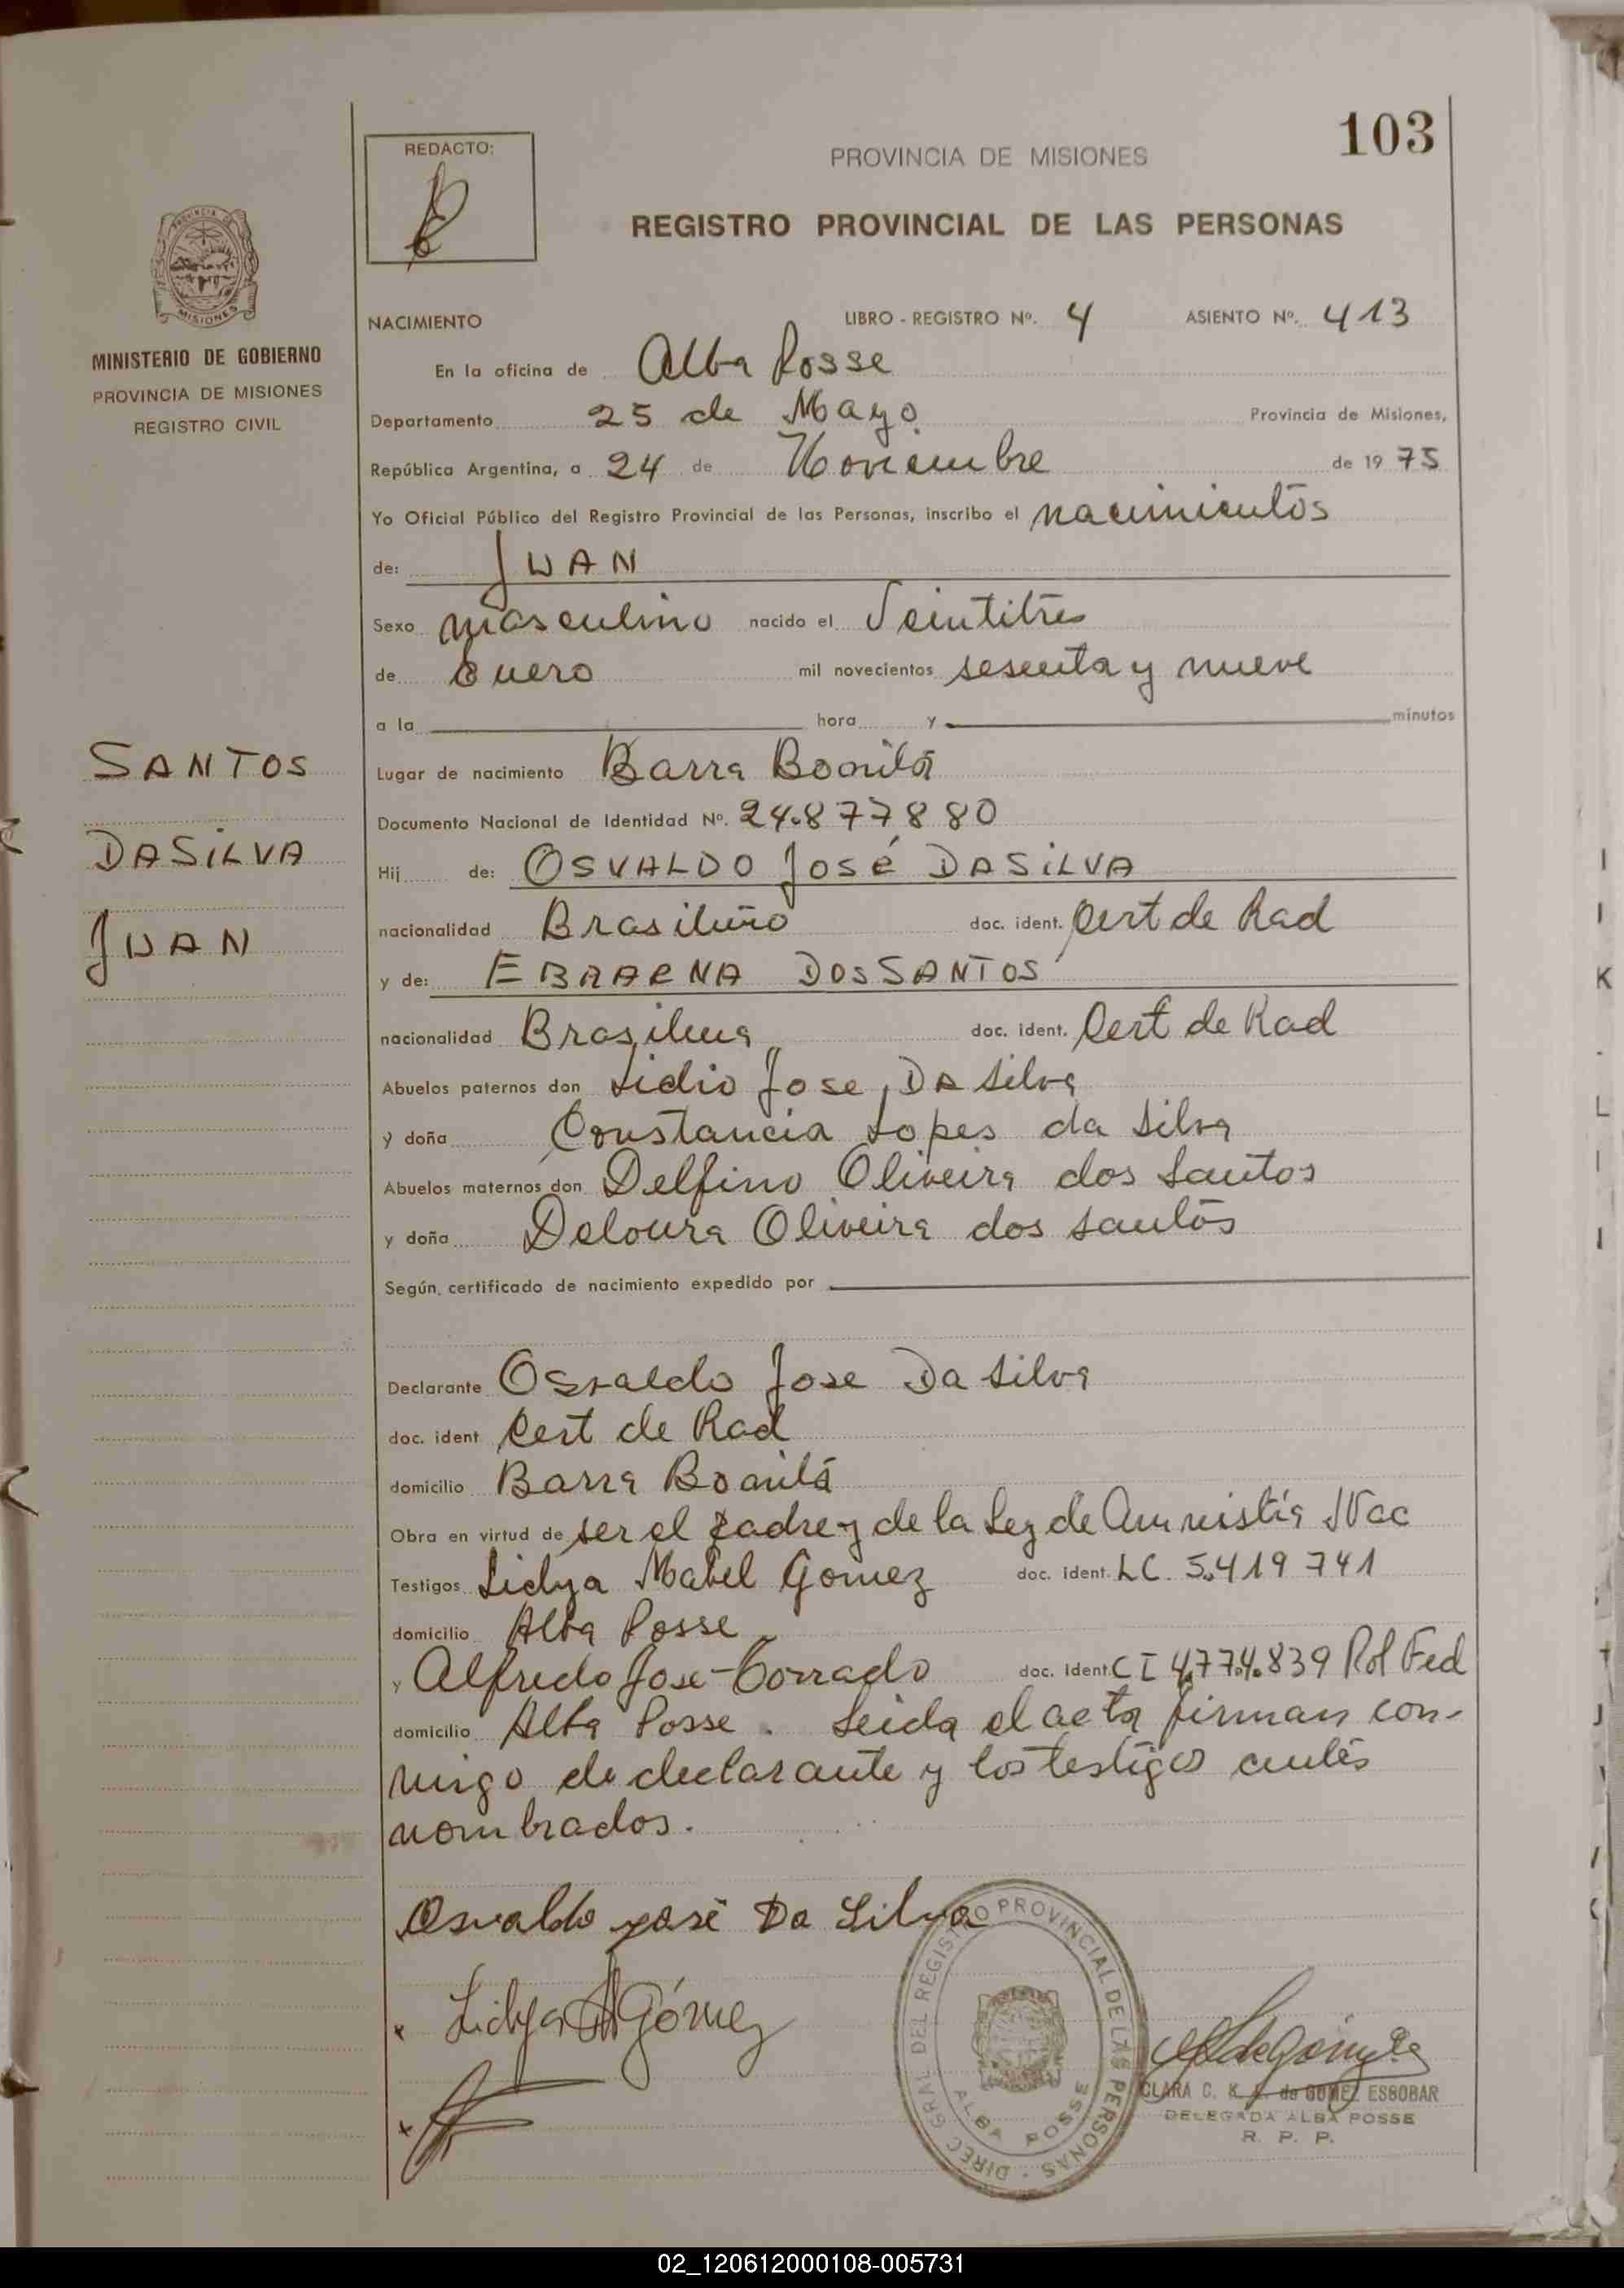 103
REDACTO:
PROVINCIA DE MISIONES
REGISTRO PROVINCIAL DE LAS PERSONAS
PROVINCIA DE MISIONES
MINISTERIO DE GOBIERNO
PROVINCIA DE MISIONES
REGISTRO CIVIL
SANTOS
DASILVA
JUAN
NACIMIENTO LIBRO - REGISTRO Nº. 4 ASIENTO Nº. 413
En la oficina de Alba Posse
Departamento 25 de Mayo Provincia de Misiones,
República Argentina, a 24 de Noviembre de 1975
Yo Oficial Público del Registro Provincial de las Personas, inscribo el nacimientos
de: JUAN
Sexo masculino nacido el Veintitres
de Enero mil novecientos sesenta y nueve
a la hora y minutos
Lugar de nacimiento Barra Bonita
Documento Nacional de Identidad Nº. 24.877880
Hij de: OSVALDO JOSÉ DASILVA
nacionalidad Brasileño doc. ident. Cert de Rad
y de: DOSSANTOS
nacionalidad Brasilena doc. ident. Cert de Rad
Abuelos paternos don Lidio Jose DA Silva
y doña Constancia Lopes da Silva
Abuelos maternos don Delfino Oliveira dos Santos
y doña Deloura Oliveira dos santos
Según certificado de nacimiento expedido por
Declarante Osvaldo Jose Da Silva
doc. ident Cert de Rad
domicilio Barra Bonita
Obra en virtud de ser el padre y de la Ley de Amnistía Nac
Testigos Lidya Mabel Gomez doc. ident. LC. 5.419741
domicilio Alba Posse
y Alfredo Jose doc. ident. CI 4.774.839 Pol Fed
domicilio Alba Posse. Leida el acta firman con-
migo el declarante y los testigos antes
nombrados.
Osvaldo José Da Silva
Lidya M Gómez
DIREC GRAL DEL REGISTRO PROVINCIAL DE LAS PERSONAS
ALBA POSSE
CLARA C. K. de GOMEZ ESCOBAR
DELEGADA ALBA POSSE
R. P. P.
02_120612000108-005731